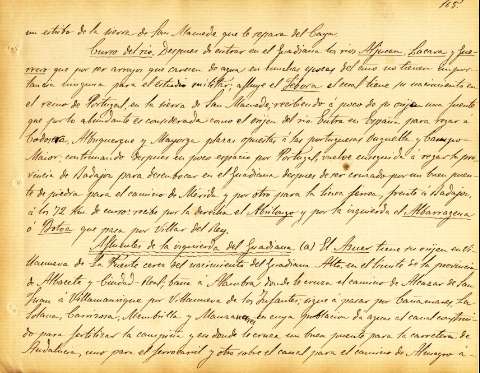 165
un estribo de la sierra de San Mamede que lo separa del Caya.
Curso del rio, Despues de entrar en el Guadiana los rios Aljucen, Lacara y Gue-
rrero que por ser arroyos que carecen de agua en muchas epocas del año no tienen impor-
tancia ninguna para el estudio militar; afluye el Gebora el cual tiene su nacimiento en
el reino de Portugal, en la sierra de San Mamede, recibiendo á poco de su origen una fuente
que por lo abundante es considerada como el origen del rio. Entra en España para bajar a
Codosera, Alburquerque y Mayorga plazas opuestas á las portuguesas Ouguella y Campo-
Maior; continuando despues un poco espacio por Portugal, vuelve enseguida á regar la pro-
vincia de Badajoz para desembocar en el Guadiana despues de ser cruzado por un buen puente
de piedra para el camino de Mérida y por otro para la linea ferrea, frente á Badajoz,
á los 72 km de curso: recibe por la derecha el Abrilongo y por la izquierda el Albarragena
ó Botoa que pasa por Villar del Rey.
Afluentes de la izquierda del Guadiana (a) El Azuer tiene su origen en Vi-
llanueva de la Fuente cerca del nacimiento del Guadiana Alto, en el limite de la provincia
de Albacete y Ciudad-Real, baña á Alhambra donde lo cruza el camino de Alcazar de San
Juan á Villamanrique por Villanueva de los Infantes, sigue á pasar por Cañamares, La
Solana, Carrizosa, Membrilla y Manzanares, en cuya poblacion da aguas al canal construi-
do para fertilizar la campiña y en donde lo cruza un buen puente para la carretera de
Andalucia, uno para el ferrocarril y otro sobre el canal para el camino de Almagro á-